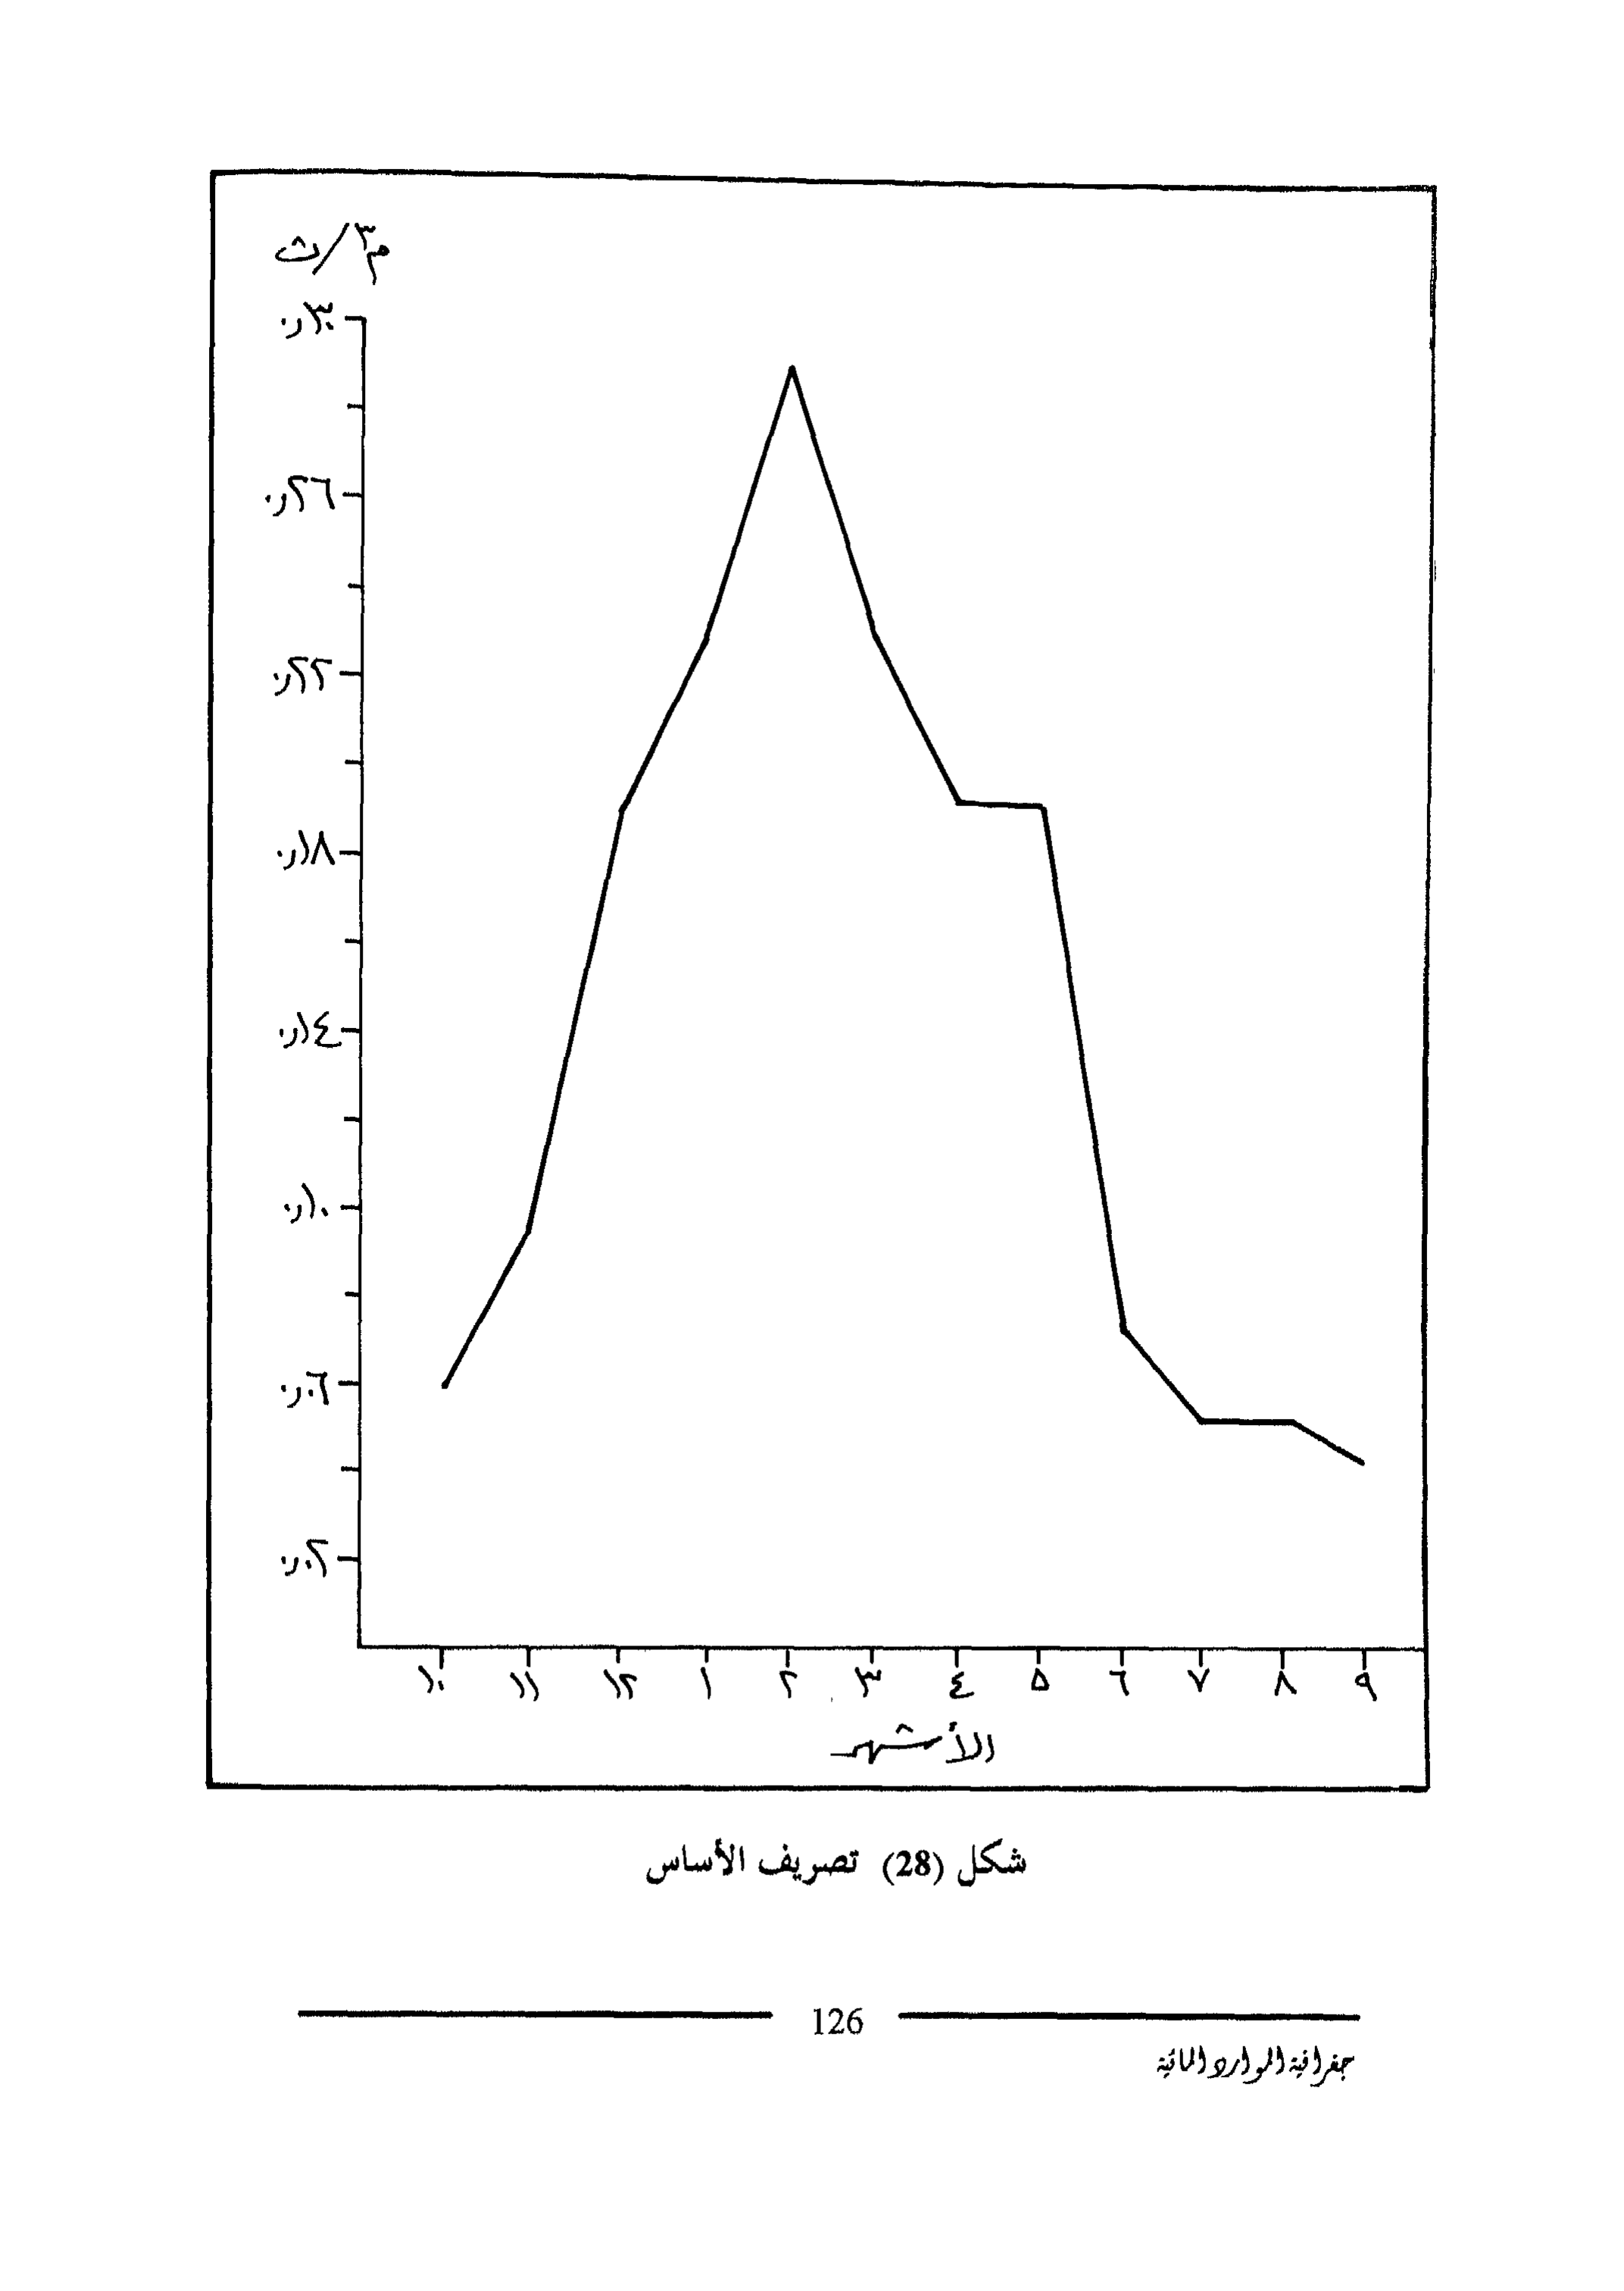 م٣/ث
٣٠ر٠
٢٦ر٠
٢٢ر٠
١٨ر٠
١٤ر٠
١٠ر٠
٠٦ر٠
٠٢ر٠
١٠ ١١ ١٢ ١ ٢ ٣ ٤ ٥ ٦ ٧ ٨ ٩
الأشهر
شكل (28) تصريف الأساس
126
جغرافية الموارد المائية